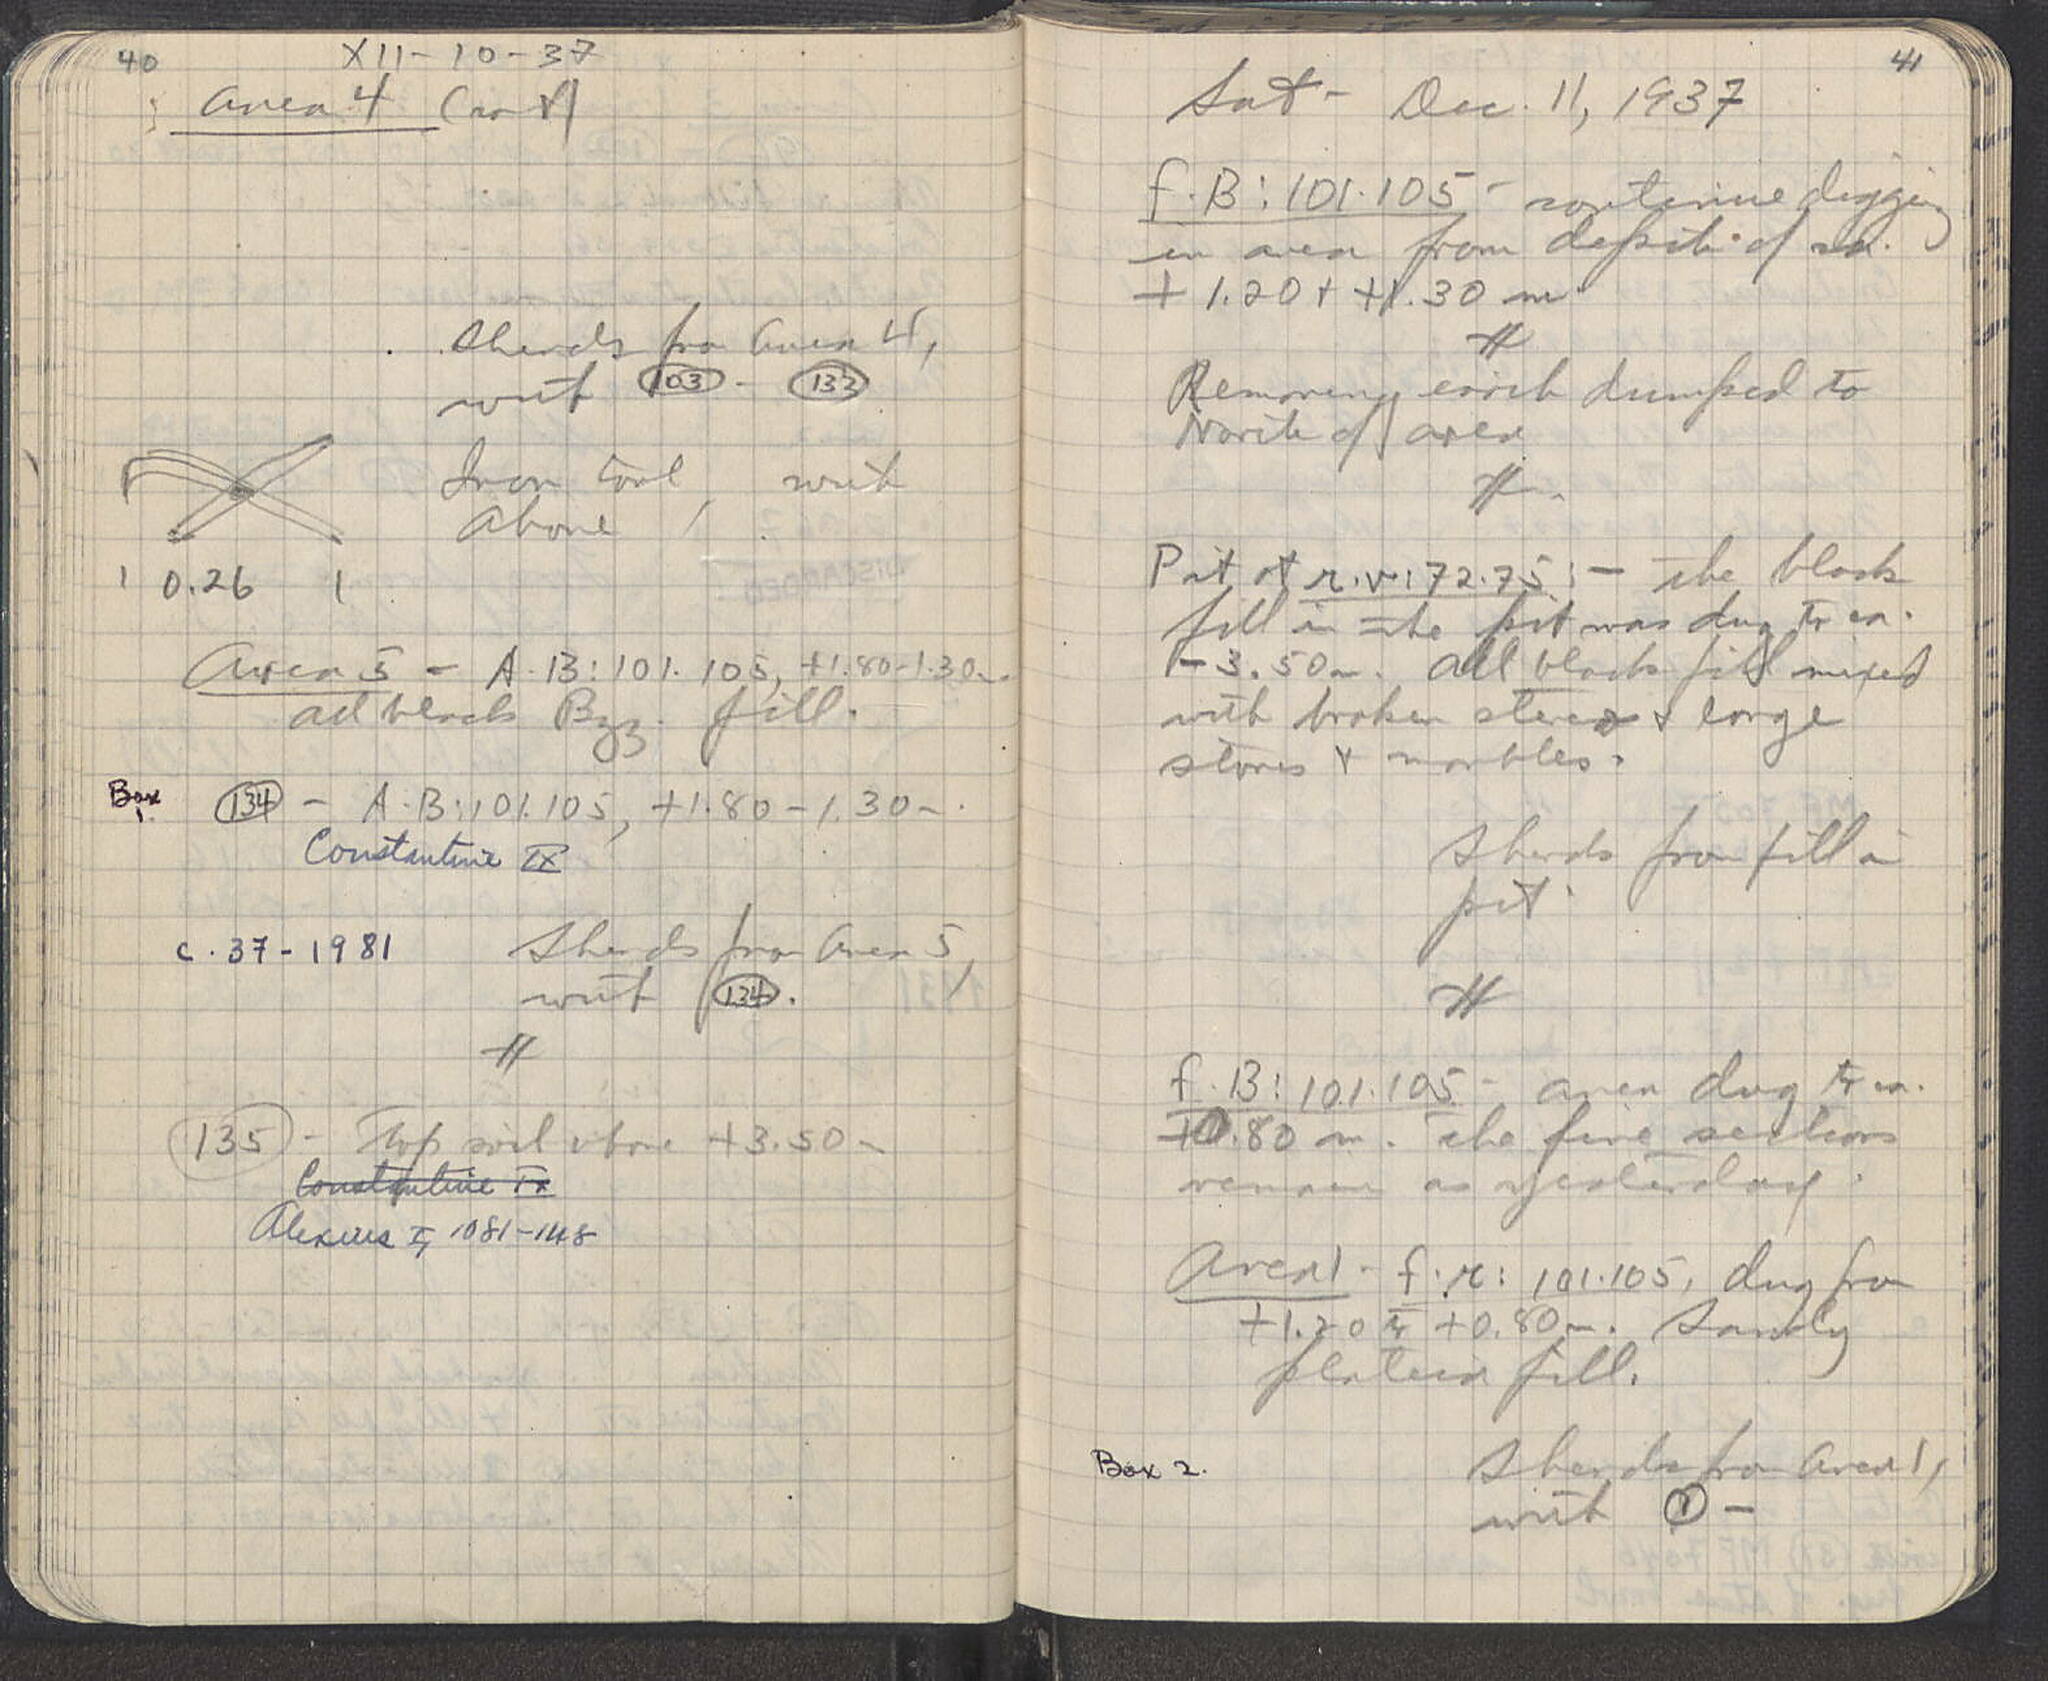 40
XII-10-37
Area 4 (con't)
Sherds from Area 4,
with 103 - 133
Iron tool, with
above
0.26
Area 5 - A-B:101.105, +1.80-1.30m.
all black Byz. fill.
Box
1.
134 - A-B:101.105, +1.80-1.30m.
Constantine IX
c.37-1981
Sherds from Area 5,
with 134.
#
135 - Top soil above +3.50m
Constantine IX
Alexius I, 1081-1118
41
Sat - Dec. 11, 1937
f-B:101.105 - continue digging
in area from depth of ca.
+1.20 + +1.30 m.
#
Removing earth dumped to
North of area
#.
Pit at π.ν:72.75:- the black
fill in the pit was dug to ca.
-3.50m. All black fill mixed
with broken & large
stones & marbles.
Sherds from fill in
pit.
#
f-B:101.105 - area dug to ca.
+0.80 m. The five sections
remain as yesterday.
Area 1 - f-π: 101.105, dug from
+1.20 to +0.80m. Sandy
fill.
Box 2.
Sherds from Area 1,
with 1 -